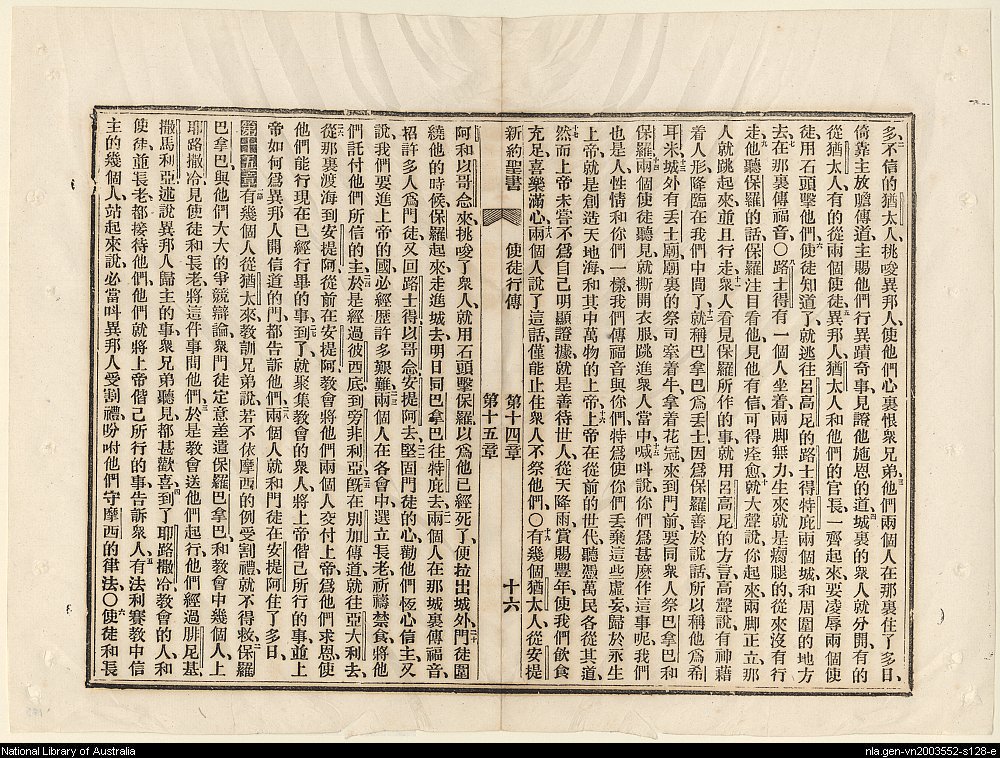 多不信的猶太人挑唆異邦人、使他們心裏恨衆兄弟、他們兩個人在那裏住了多日、
倚靠主放膽傳道、主賜他們行異蹟奇事、見證他施恩的道、城裏的衆人就分開、有的
從猶太人、有的從兩個使徒、異邦人、猶太人、和他們的官長、一齊起來、要凌辱兩個使
徒、用石頭擊他們、使徒知道了、就逃往呂高尼的路士得特庇兩個城、和周圍的地方
去、在那裏傳福音、〇路士得有一個人坐着、兩脚無力、生來就是瘸腿的、從來沒有行
走、他聽保羅的話、保羅注目看他、見他有信、可得痊愈、就大聲說、你起來、兩脚正立、那
人就跳起來、並且行走、衆人看見保羅所作的事、就用呂高尼的方言、高聲說、有神藉
着人形降臨在我們中間了、就稱巴拿巴爲丟士、因爲保羅善於說話、所以稱他爲希
耳米、城外有丟士廟、廟裏的祭司牽着牛、拿着花冠、來到門前、要同衆人祭巴拿巴和
保羅、兩個使徒聽見、就撕開衣服、跳進衆人當中、喊呌說、你們爲甚麽作這事呢、我們
也是人、性情和你們一樣、我們傳福音與你們、特爲使你們丟棄這些虛妄、歸於永生
上帝、就是創造天地海和其中萬物的上帝、上帝在從前的世代、聽憑萬民各從其道、
然而上帝未嘗不爲自己明顯證據、就是善待世人、從天降雨、賞賜豐年、使我們飲食
充足、喜樂滿心、兩個人說了這話、僅能止住衆人不祭他們、〇有幾個猶太人、從安提
新約聖書 使徒行傳 第十四章 第十五章 十六
阿和以哥念來、挑唆了衆人、就用石頭擊保羅、以爲他已經死了、便拉出城外、門徒圍
繞他的時候、保羅起來、走進城去、明日同巴拿巴往特庇去、兩個人在那城裏傳福音、
招許多人爲門徒、又回路士得以哥念安提阿去、堅固門徒的心、勸他們恆心信主、又
說、我們要進上帝的國、必經歷許多艱難、兩個人在各會中、選立長老、祈禱禁食、將他
們託付他們所信的主、於是經過彼西底、到旁非利亞、旣在別加傳道、就往亞大利去、
從那裏渡海到安提阿、從前在安提阿、教會將他們兩個人交付上帝、爲他們求恩、使
他們能行現在已經行畢的事、到了、就聚集教會的衆人、將上帝偕己所行的事、並上
帝如何爲異邦人開信道的門、都告訴他們、兩個人就和門徒在安提阿住了多日、
第十五章有幾個人從猶太來、教訓兄弟說、若不依摩西的例受割禮、就不得救、保羅
巴拿巴、與他們大大的爭競辯論、衆門徒定意差遣保羅巴拿巴、和教會中幾個人、上
耶路撒冷、見使徒和長老、將這件事問他們、於是教會送他們起行、他們經過腓尼基
撒馬利亞、述說異邦人歸主的事、衆兄弟聽見、都甚歡喜、到了耶路撒冷、教會的人、和
使徒並長老、都接待他們、他們就將上帝偕己所行的事、告訴衆人、有法利賽教中信
主的幾個人、站起來說、必當呌異邦人受割禮、吩咐他們守摩西的律法、〇使徒和長
National Library of Australia
nla.gen-vn2003552-s128-e